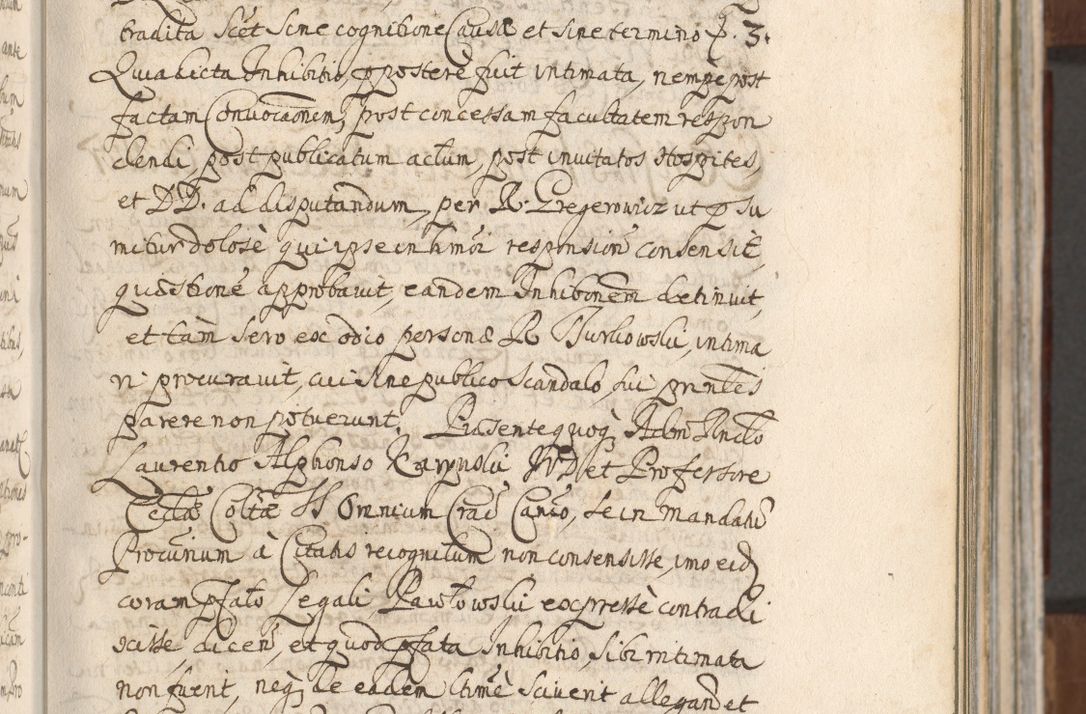 tradita scet sine cognitione Causæ et sine termino p. 3.
Quia dicta Inhibitio, p postere fuit intimata, nempe post
factam Convocãonem, post concessam facultatem respon
dendi, post publicatum actum, post invitatos Hospites,
et DD. ad disputandum, per R. Gregerowicz ut p su
mitur dolosè qui ipse in responsion consensit,
quæstioné approbavit, eandem Inhibõnem detinuit,
et tàm sero ex odio personæ R Turkowski, intima
ri procuravit, cui sine publico scandalo, sui prntes
parere non potuerunt. Præsente quoq Adm Rndo
Laurentio Alphonso Karynski JVD et Professore
Ecclæ Coltæ SS Omnium Crac Canco, se in mandatũ
Procurium à Citatis recognitum non consensisse, imo eid
coram pfato Legali Pawłowski expressè contradi
xisse, dicen, et quod pfata Inhibitio, sibi intimata
non fuerit, neq de eadem ltimè sciverit allegand et